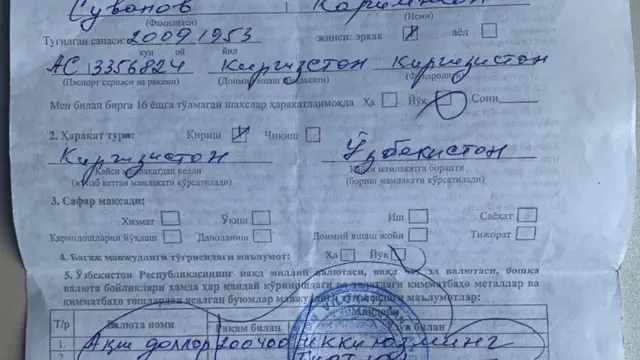 Суванов Каримжон
(Фамилияси) (Исми)
Туғилган санаси: 20 09 1953 жинси: эркак аёл
кун ой йил
АС 3356824 Киргизстон Киргизистон
(Паспорт серияси ва рақами) (Доимий яшаш мамлакати) (Фуқаролиги)
Мен билан бирга 16 ёшга тўлмаган шахслар ҳаракатланмоқда Ҳа Йўқ Сони
2. Ҳаракат тури: Кириш Чиқиш
Киргизистон Ўзбекистон
(қайси мамлакатдан келган Қайси мамлакатга борапти
кетган мамлакати кўрсатилади) (бориш мамлакати кўрсатилади)
3. Сафар мақсади:
Хизмат Ўқиш Иш Саёҳат
Қариндошларни йўқлаш Даволаниш Доимий яшаш жойи Тижорат
4. Багаж мавжудлиги тўғрисидаги маълумот: Ҳа Йўқ
5. Ўзбекистон Республикасининг нақд миллий валютаси, нақд чет эл валютаси, бошқа
валюта бойликлари ҳамда ҳар қандай кўринишдаги ва ҳолатдаги қимматбаҳо металлар ва
қимматбаҳо тошлардан ясалган буюмлар маълумотлар:
Т/р Валюта номи Рақам билан билан
1. Ақш доллар 200400 икки юз минг
2. тўрт юз